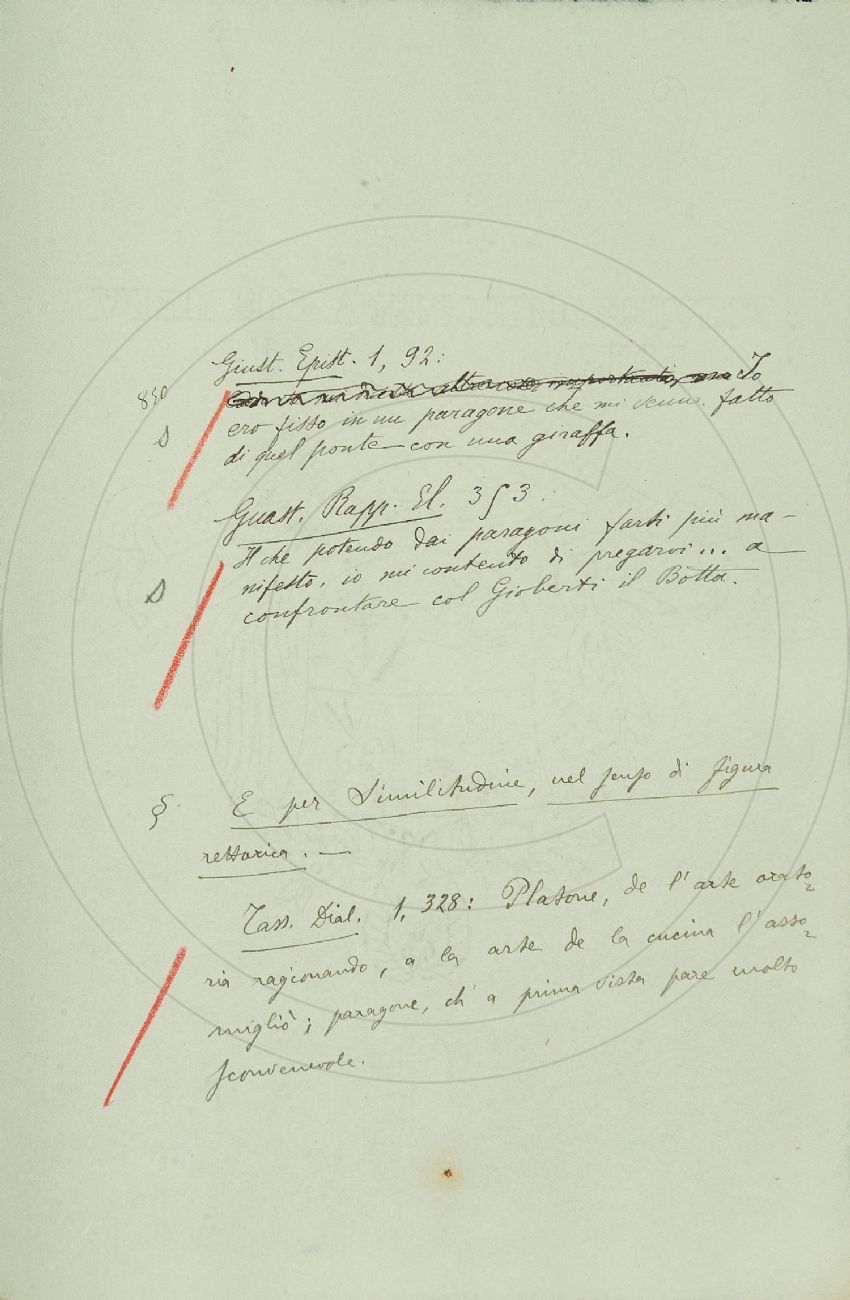 Giust. Epist. 1, 92:
850
Io
S
ero fisso in un paragone che mi venne fatto
di quel ponte con una giraffa.
Guast. Rapp. El. 353:
Il che potendo dai paragoni farsi più ma-
S
nifesto, io mi contento di pregarvi... a
confrontare col Gioberti il Botta.
§. E per Similitudine, nel senso di figura
rettorica. —
Tass. Dial. 1, 328: Platone, de l'arte orato-
ria ragionando, a la arte de la cucina l'asso-
migliò; paragone, ch'a prima vista pare molto
sconvenevole.